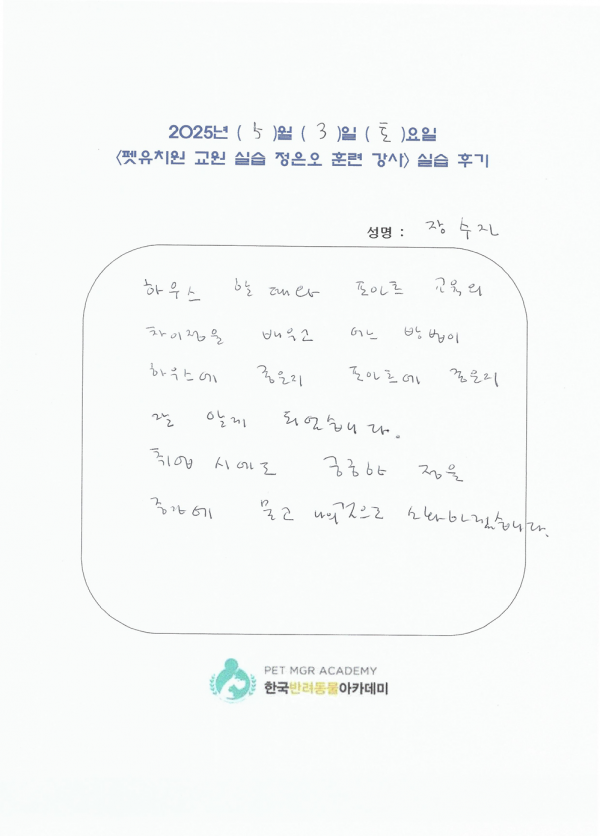 2025년 ( 5 )월 ( 3 )일 ( 토 )요일
<펫유치원 교원 실습 정은오 훈련 강사> 실습 후기
성명 : 장수지
하우스 할 때와 포인트 교육의
차이점을 배우고 어느 방법이
하우스에 좋은지 포인트에 좋은지
잘 알게 되었습니다.
취업 시에도 궁금한 점을
중간에 묻고 나의것으로 소화하겠습니다.
PET MGR ACADEMY
한국반려동물아카데미